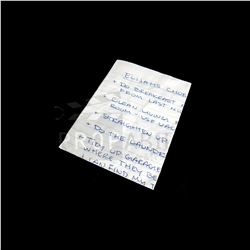 ELIJAHS CHOR
• DO BREAKFAST
FROM LAST N
• CLEAN LIVING
ROOM - USE VAC
• STRAIGHTEN UP
• DO THE LAUNDR
• TIDY UP GARAGE
WHERE THEY BE
I CAN FIND MY T